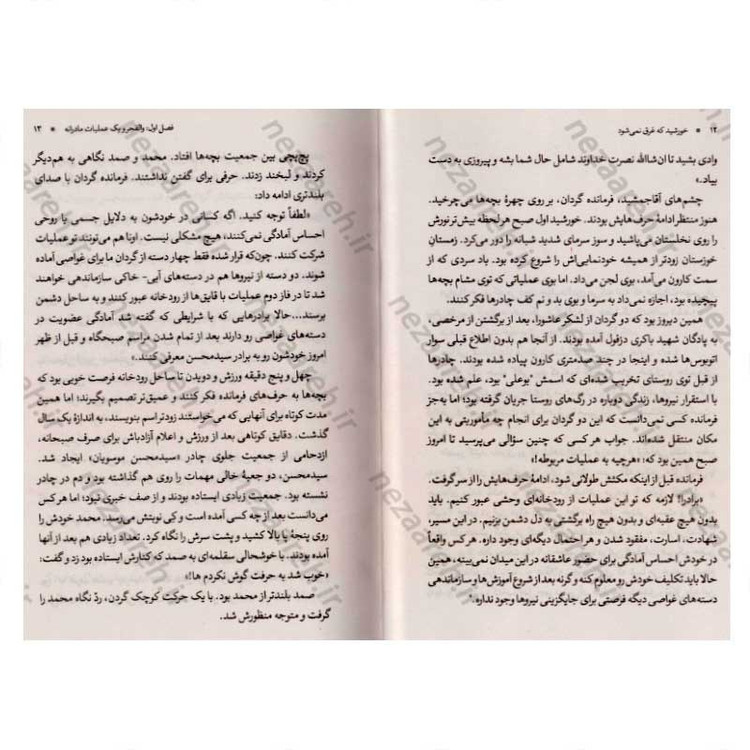 ۱۲ * خورشید که غرق نمی‌شود
وادی بشید تا ان‌شاالله نصرت خداوند شامل حال شما بشه و پیروزی به دست
بیاد.»
چشم‌های آقاجمشید، فرمانده گردان، بر روی چهرهٔ بچه‌ها می‌چرخید.
هنوز منتظر ادامهٔ حرف‌هایش بودند. خورشید اول صبح هر لحظه بیش‌تر نورش
را روی نخلستان می‌پاشید و سوز سرمای شدید شبانه را دور می‌کرد. زمستانِ
خوزستان زودتر از همیشه خودنمایی‌اش را شروع کرده بود. باد سردی که از
سمت کارون می‌آمد، بوی لجن می‌داد. اما بوی عملیاتی که توی مشام بچه‌ها
پیچیده بود، اجازه نمی‌داد به سرما و بوی بد و نم کف چادرها فکر کنند.
همین دیروز بود که دو گردان از لشکر عاشورا، بعد از برگشتن از مرخصی،
به پادگان شهید باکری دزفول آمده بودند. از آنجا هم بدون اطلاع قبلی سوار
اتوبوس‌ها شده و اینجا در چند صدمتری کارون پیاده شده بودند. چادرها
از قبل توی روستای تخریب شده‌ای که اسمش "بوعلی" بود، علم شده بود.
با استقرار نیروها، زندگی دوباره در رگ‌های روستا جریان گرفته بود؛ اما به‌جز
فرمانده کسی نمی‌دانست که این دو گردان برای انجام چه مأموریتی به این
مکان منتقل شده‌اند. جواب هر کسی که چنین سؤالی می‌پرسید تا امروز
صبح همین بود که: «هرچیه به عملیات مربوطه!»
فرمانده قبل از اینکه مکثش طولانی شود، ادامهٔ حرف‌هایش را از سر گرفت.
«برادرا! لازمه که تو این عملیات از رودخانه‌ای وحشی عبور کنیم. باید
بدون هیچ عقبه‌ای و بدون هیچ راه برگشتی به دل دشمن بزنیم. در این مسیر،
شهادت، اسارت، مفقود شدن و هر احتمال دیگه‌ای وجود داره. هر کس واقعاً
در خودش احساس آمادگی برای حضور عاشقانه در این میدان نمی‌بینه، همین
حالا باید تکلیف خودش رو معلوم کنه و گرنه بعد از شروع آموزش‌ها و سازماندهی
دسته‌های غواصی دیگه فرصتی برای جایگزینی نیروها وجود نداره.»
فصل اول: والفجر و یک عملیات مادرانه * ۱۳
پچ‌پچی بین جمعیت بچه‌ها افتاد. محمد و صمد نگاهی به هم‌دیگر
کردند و لبخند زدند. حرفی برای گفتن نداشتند. فرمانده گردان با صدای
بلندتری ادامه داد:
«لطفاً توجه کنید. اگه کسانی در خودشون به دلایل جسمی یا روحی
احساس آمادگی نمی‌کنند، هیچ مشکلی نیست. اونا هم می‌تونند تو عملیات
شرکت کنند. چون‌که قرار شده فقط چهار دسته از گردان ما برای غواصی آماده
شوند. دو دسته از نیروها هم در دسته‌های آبی- خاکی سازماندهی خواهند
شد تا در فاز دوم عملیات با قایق‌ها از رودخانه عبور کنند و به ساحل دشمن
برسند...حالا برادرهایی که با شرایطی که گفته شد آمادگی عضویت در
دسته‌های غواصی رو دارند بعد از تمام شدن مراسم صبحگاه و قبل از ظهر
امروز خودشون رو به برادر سیدمحسن معرفی کنند.»
چهل و پنج دقیقه ورزش و دویدن تا ساحل رودخانه فرصت خوبی بود که
بچه‌ها به حرف‌های فرمانده فکر کنند و عمیق‌تر تصمیم بگیرند؛ اما همین
مدت کوتاه برای آنهایی که می‌خواستند زودتر اسم بنویسند، به اندازهٔ یک سال
گذشت. دقایق کوتاهی بعد از ورزش و اعلام آزادباش برای صرف صبحانه،
ازدحامی از جمعیت جلوی چادر «سیدمحسن موسویان» ایجاد شد.
سیدمحسن، دو جعبهٔ خالی مهمات را روی هم گذاشته بود و دم در چادر
نشسته بود. جمعیت زیادی ایستاده بودند و از صف خبری نبود؛ اما هر کس
می‌دانست بعد از چه کسی آمده است و کی نوبتش می‌رسد. محمد خودش را
روی پنجهٔ پا بالا کشید و پشت سرش را نگاه کرد. تعداد زیادی هم بعد از آنها
آمده بودند. با خوشحالی سقلمه‌ای به صمد که کنارش ایستاده بود زد و گفت:
«خوب شد به حرفت گوش نکردم ها!»
صمد بلندتر از محمد بود. با یک حرکت کوچک گردن، ردّ نگاه محمد را
گرفت و متوجه منظورش شد.
nezaareh.ir